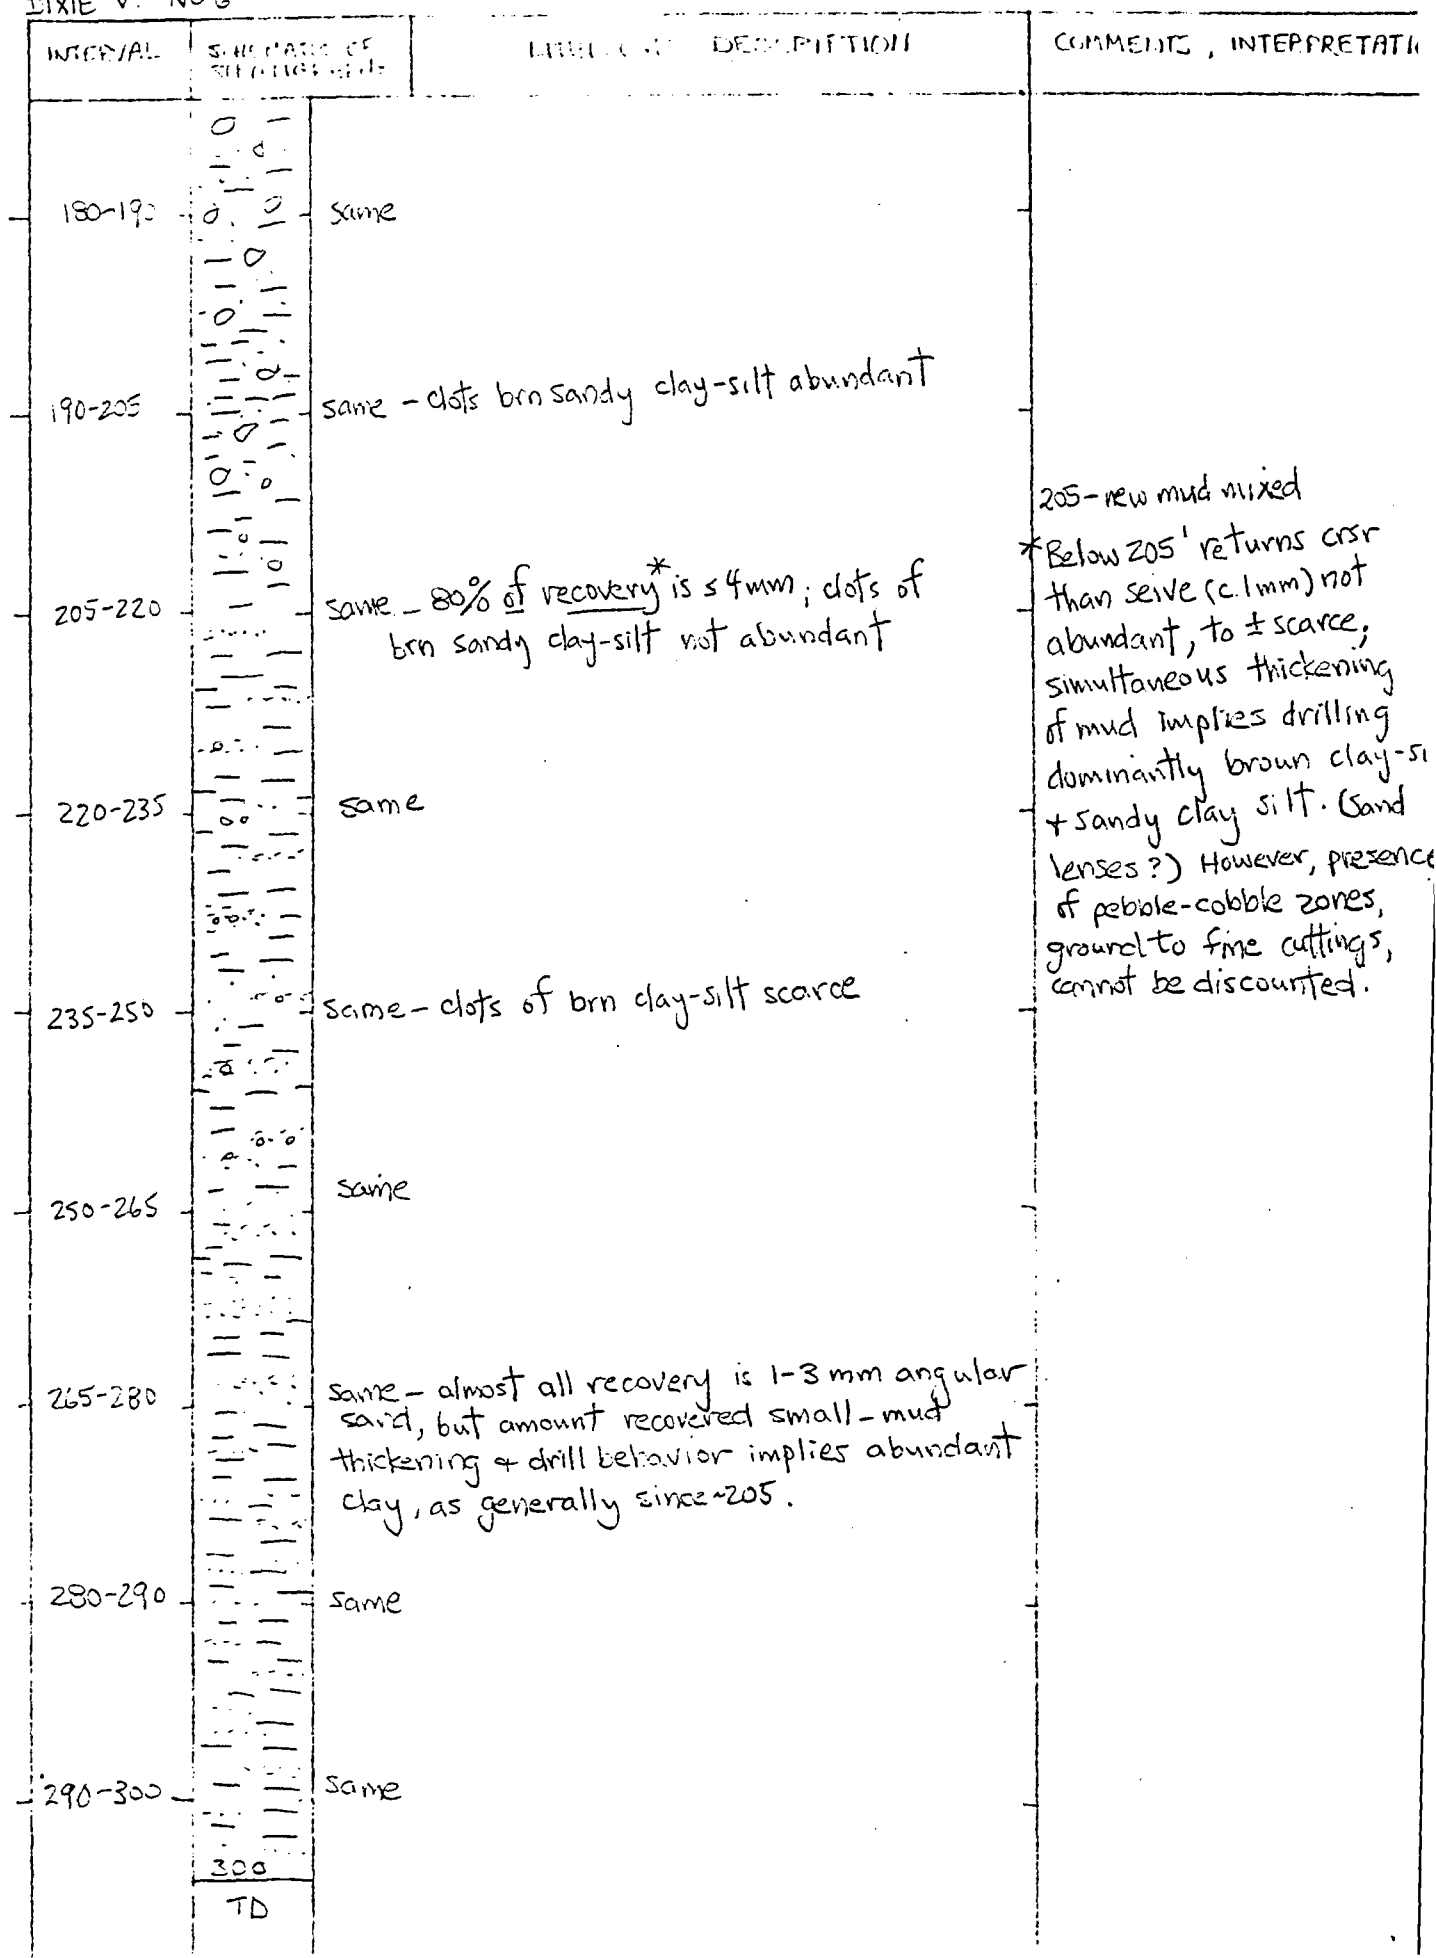 DIXIE V. No 6
INTERVAL
SCHEMATIC OF
DESCRIPTION
COMMENTS, INTERPRETATI
180-190
same
190-205
same - clots brn sandy clay-silt abundant
205-220
same - 80% of recovery* is ≤ 4mm; clots of
brn sandy clay-silt not abundant
205-new mud mixed
*Below 205' returns crsr
than seive (c. 1mm) not
abundant, to ± scarce;
simultaneous thickening
of mud implies drilling
dominantly brown clay-si
+ sandy clay silt. (Sand
lenses?) However, presence
of pebble-cobble zones,
ground to fine cuttings,
cannot be discounted.
220-235
same
235-250
same - clots of brn clay-silt scarce
250-265
same
265-280
same - almost all recovery is 1-3 mm angular
sand, but amount recovered small - mud
thickening + drill behavior implies abundant
clay, as generally since ~205.
280-290
same
290-300
same
300
TD